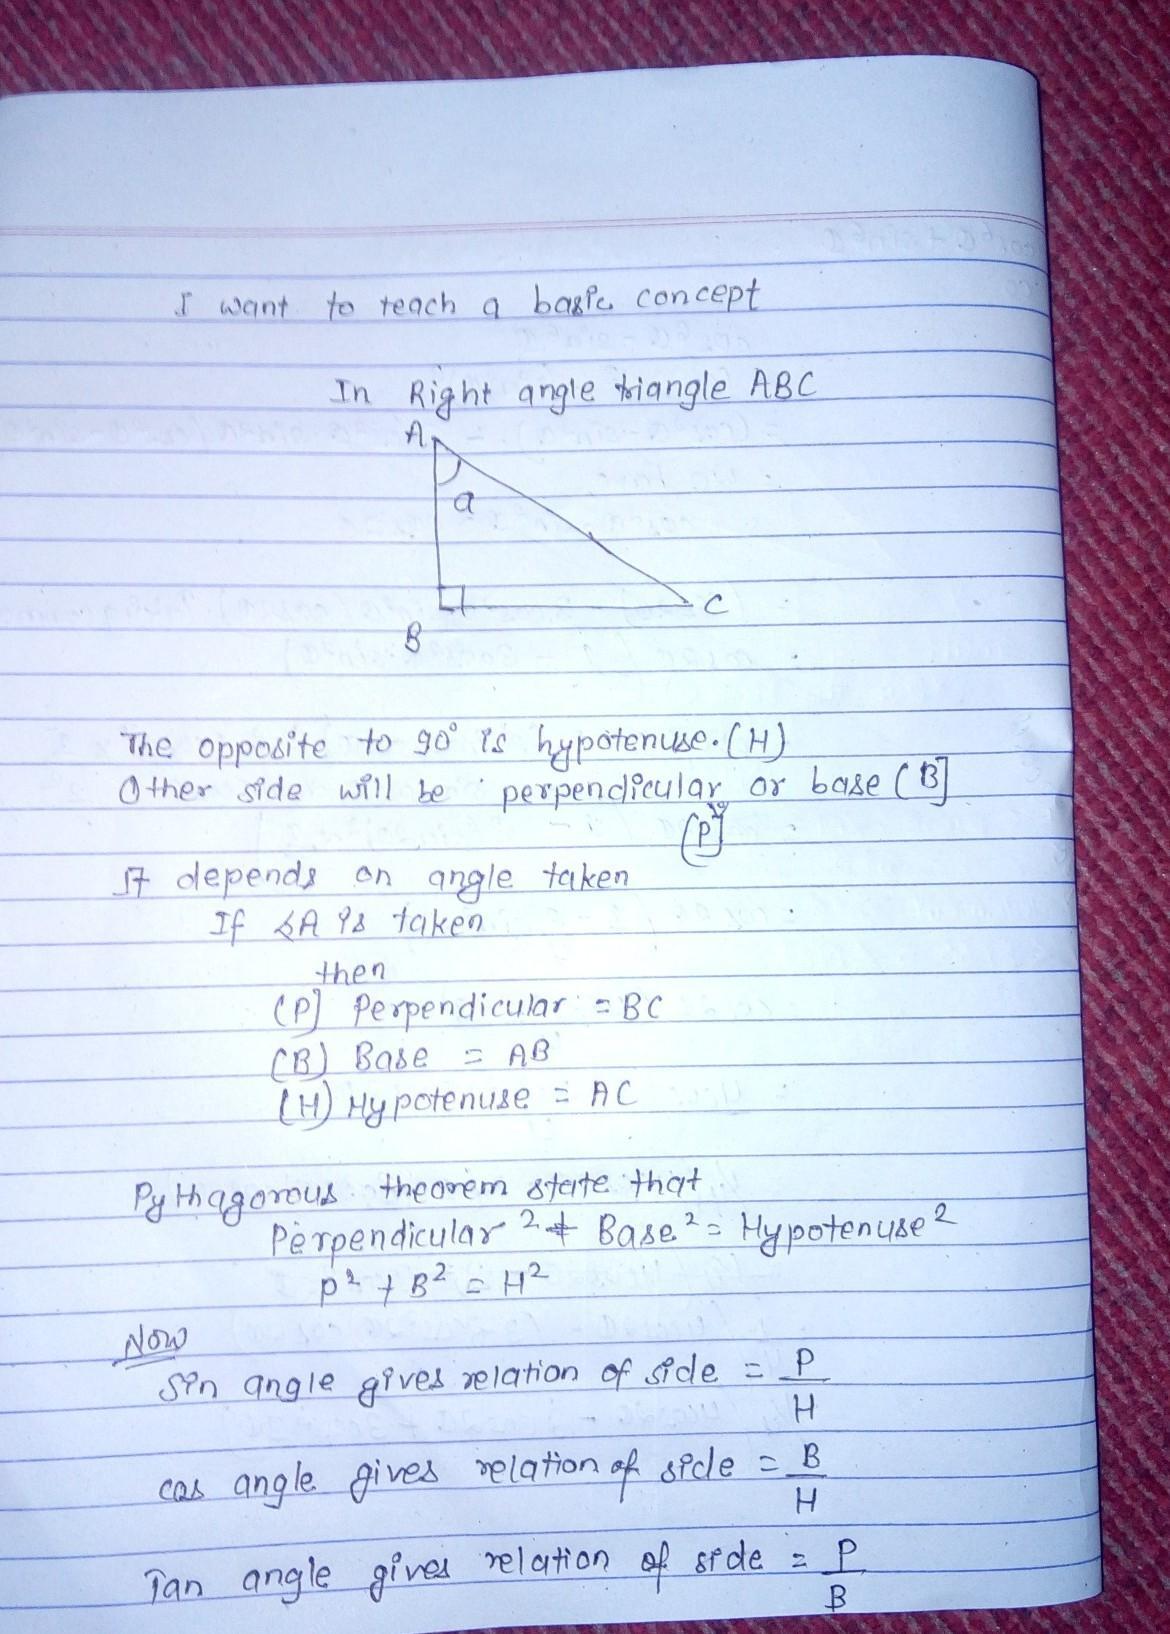 I want to teach a basic concept
In Right angle triangle ABC
A
a
B
C
The opposite to 90° is hypotenuse. (H)
Other side will be perpendicular or base (B]
(P]
It depends on angle taken
If ∠A is taken
then
(P] Perpendicular = BC
(B) Base = AB
(H) Hypotenuse = AC
Pythagorous theorem state that
Perpendicular² + Base² = Hypotenuse²
P² + B² = H²
Now
Sin angle gives relation of side = P/H
cos angle gives relation of side = B/H
Tan angle gives relation of side = P/B